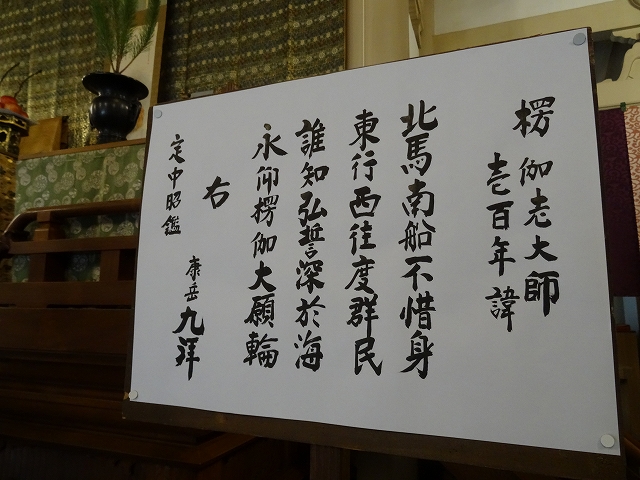 楞伽老大師
壱百年諱
北馬南船不惜身
東行西往度群民
誰知弘誓深於海
永仰楞伽大願輪
右
定中昭鑑
康岳九拝